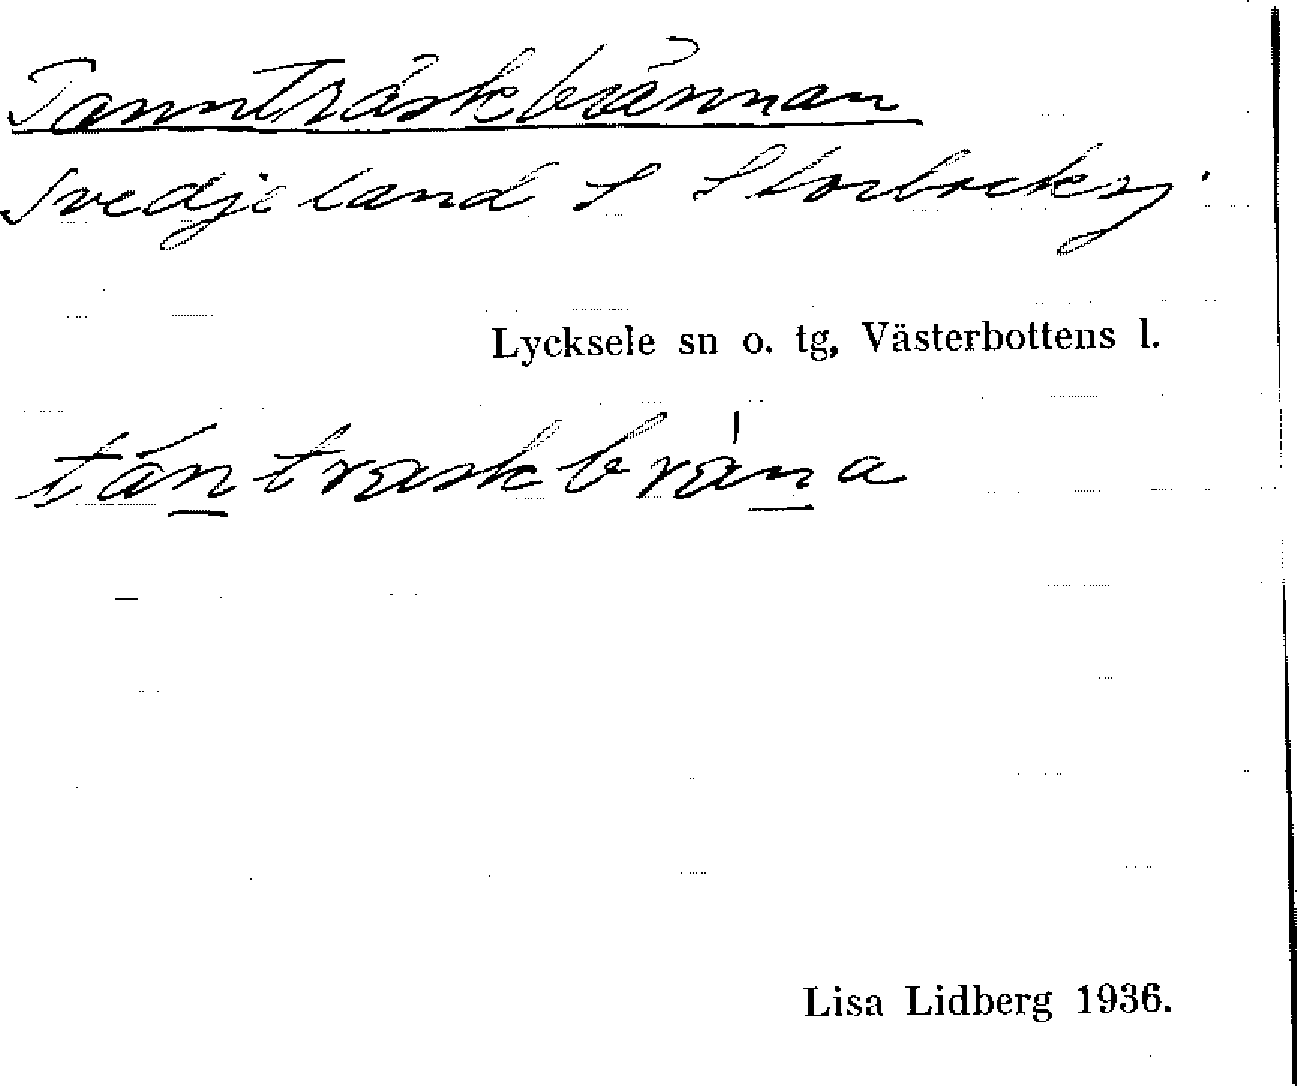 Tannträskbrännan
Svedjeland S Storbocksj.
Lycksele sn o. tg, Västerbottens l.
tántraskbrä̀na
Lisa Lidberg 1936.